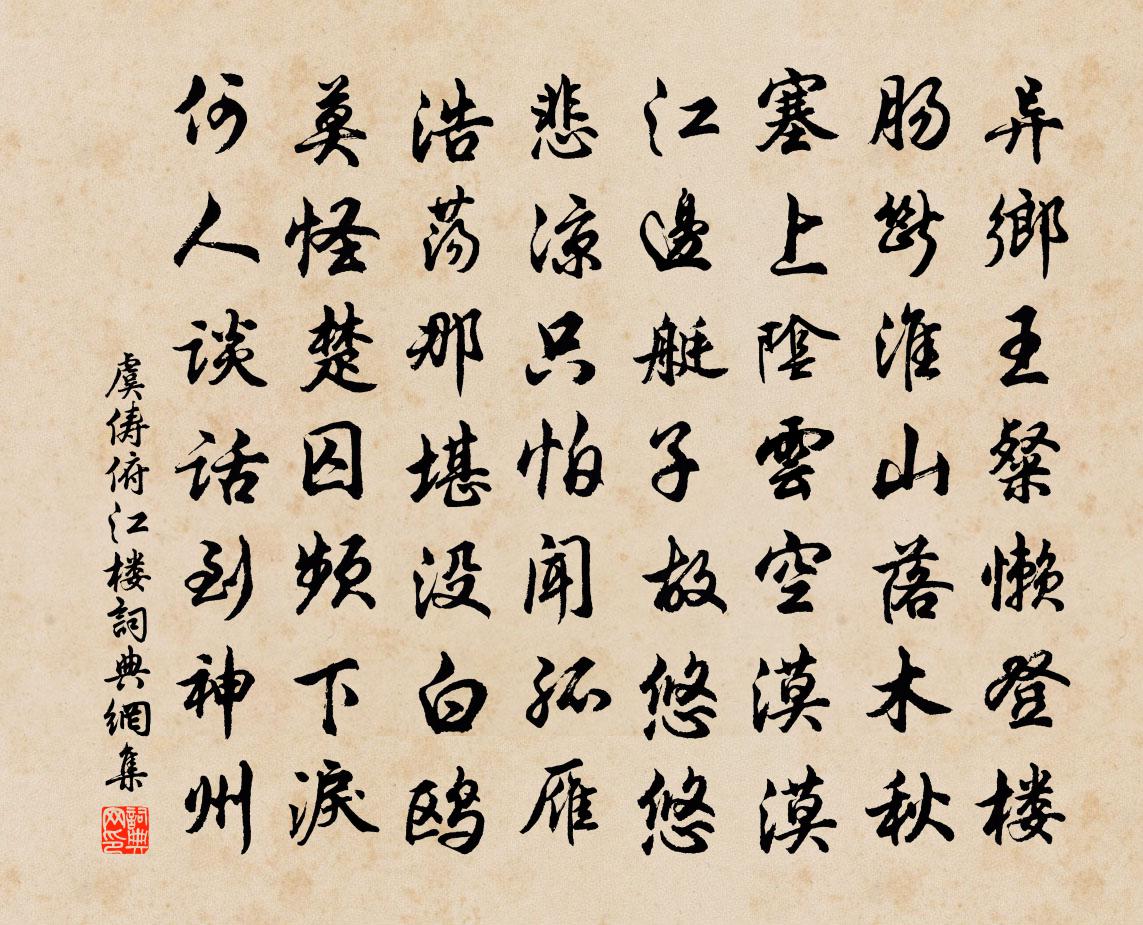 异鄉王粲懶登楼
肠斷淮山落木秋
塞上陰雲空漠漠
江邊艇子故悠悠
悲凉只怕闻孤雁
浩荡那堪没白鸥
莫怪楚囚频下淚
何人谈话到神州
虞俦俯江楼詞典網集
詞典网印